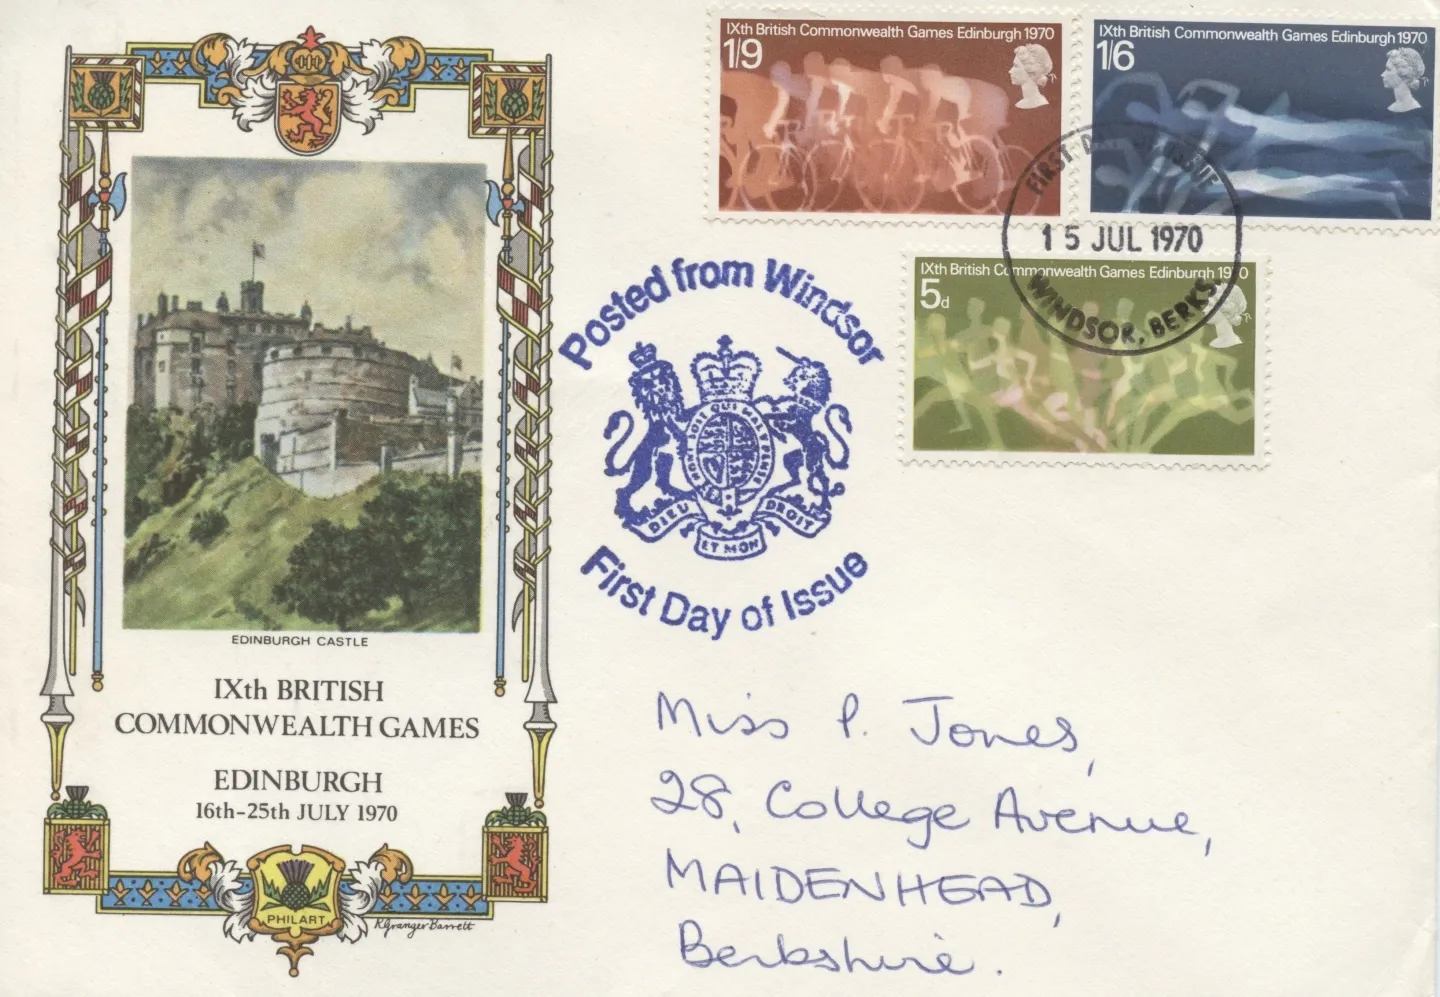 IXth British Commonwealth Games Edinburgh 1970
1/9
IXth British Commonwealth Games Edinburgh 1970
1/6
FIRST DAY OF ISSUE
15 JUL 1970
WINDSOR, BERKS.
IXth British Commonwealth Games Edinburgh 1970
5d
Posted from Windsor
HONI SOIT QUI MAL Y PENSE
DIEU ET MON DROIT
First Day of Issue
EDINBURGH CASTLE
IXth BRITISH
COMMONWEALTH GAMES
EDINBURGH
16th-25th JULY 1970
PHILART
R Granger Barrett
Miss P. Jones,
28, College Avenue,
MAIDENHEAD,
Berkshire.